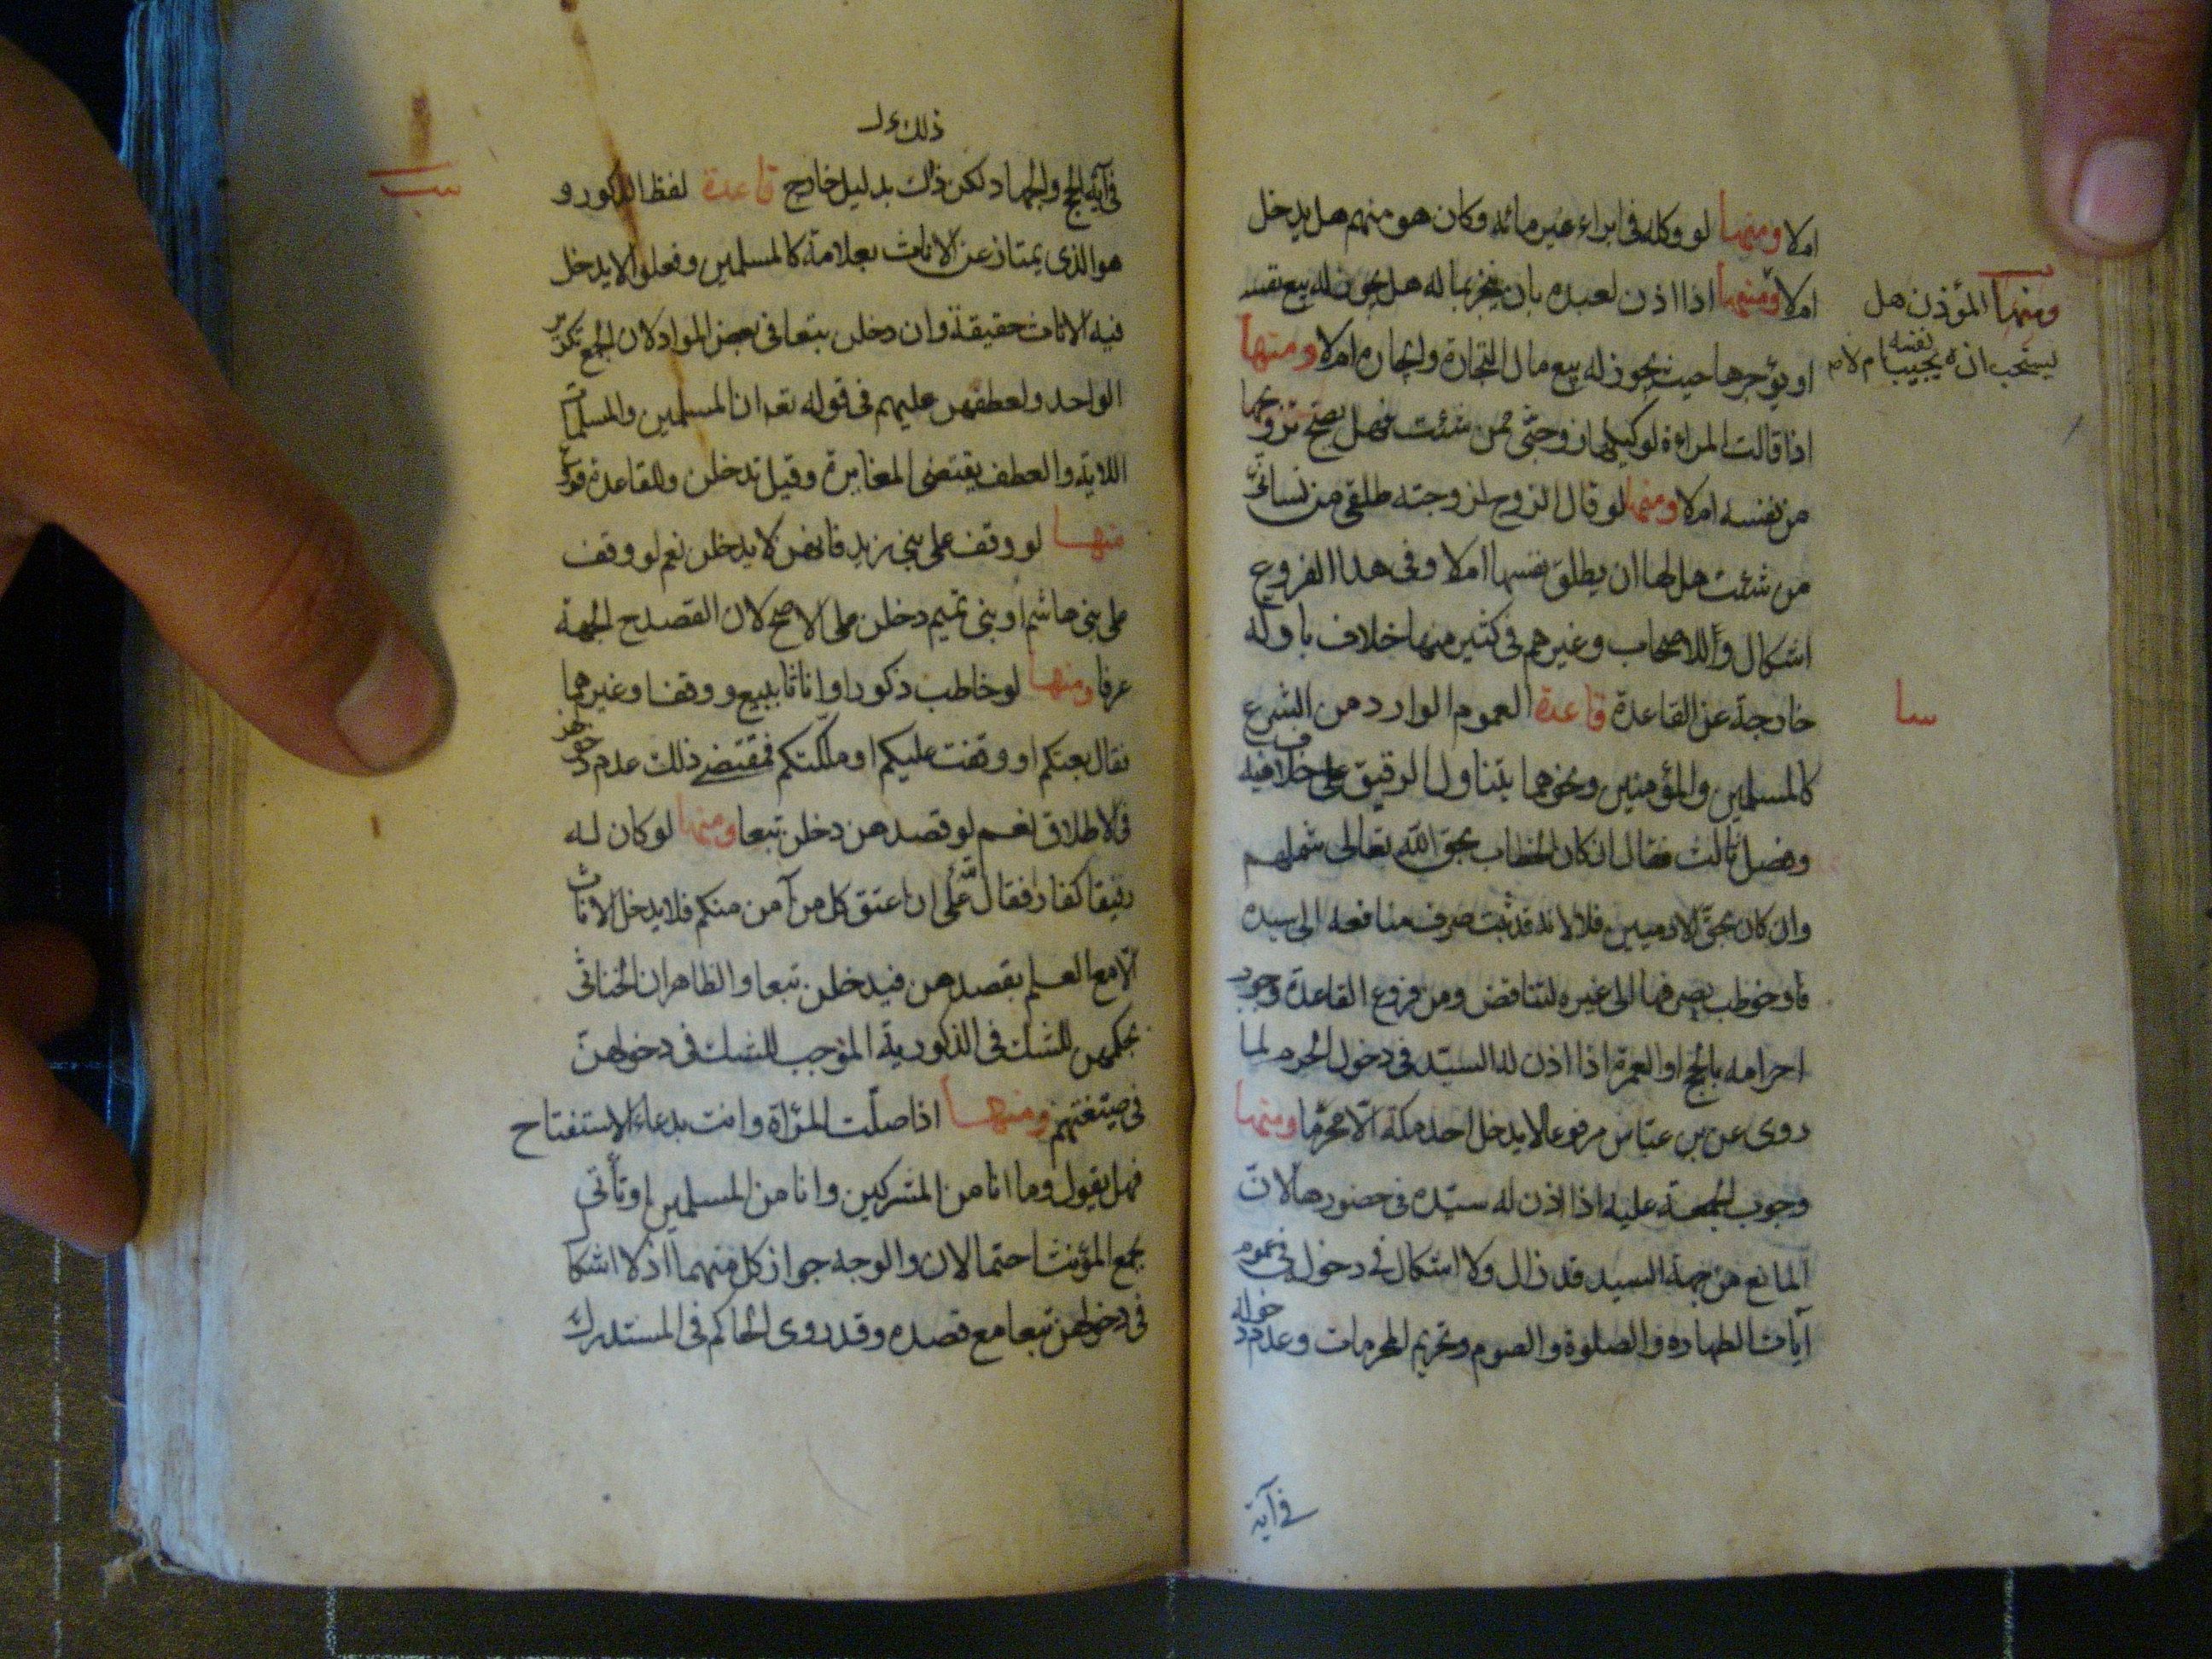 ام لا ومنها لو وكله فى ابراء غرمائه وكان هو منهم هل يدخل
ام لا ومنها اذا اذن لعبده بان يتجر بماله هل يجوز له بيع نفسه
او يؤجرها حيث يجوز له بيع مال التجارة وايجاره ام لا ومنها
اذا قالت المراءة لوكيلها زوجنى ممن شئت فهل يصح تزويجها
من نفسه ام لا ومنها لو قال الزوج لزوجته طلقى من نسائى
من شئت هل لها ان يطلق نفسها ام لا وفى هذا الفروع
اشكال وللاصحاب وغيرهم فى كثير منها خلاف با وله
خارجة عن القاعدة قاعدة العموم الوارد من الشرع
كالمسلمين والمؤمنين ونحوهما يتناول الرقيق على خلاف فيه
وفصل ثالث فقال ان كان الخطاب بحق الله تعالى شملهم
وان كان بحق الادميين فلا لانه قد ثبت صرف منافعه الى سيده
فلو خوطب بصرفها الى غيره لتناقض ومن فروع القاعدة وجوب
احرامه بالحج او العمرة اذا اذن له السيد فى دخول الحرم لما
روى عن بن عباس مرفوعا لا يدخل احد مكة الا محرما ومنها
وجوب الجمعة عليه اذا اذن له سيده فى حضورها لان
المانع من جهة السيد قد زال ولا اشكال فى دخوله فى عموم
آيات الطهاره والصلوة والصوم وتحريم المحرمات وعدم دخوله
فى آية
ومنها المؤذن هل
يستحب ان يجيب نفسه ام لا
سا
ذلك
فى آية الحج والجهاد لكن ذلك بدليل خارج قاعدة لفظ الذكور و
هو الذى يمتاز عن الاناث بعلامة كالمسلمين وفعلوا لا يدخل
فيه الاناث حقيقة وان دخلن تبعا فى بعض المواد لان الجمع تكرير
الواحد ولعطفهن عليهم فى قوله تعه ان المسلمين والمسلمات
الاية والعطف يقتضى المغايرة وقيل تدخلن وللقاعدة فروع
منها لو وقف على بنى زيد فانهن لا يدخلن نعم لو وقف
على بنى هاشم او بنى تميم دخلن على الاصح لان القصد ح الجهة
عرفا ومنها لو خاطب ذكورا واناثا ببيع ووقف وغيرهما
فقال بعتكم او وقفت عليكم او ملكتكم فمقتضى ذلك عدم دخولهن
فى الاطلاق نعم لو قصدهن دخلن تبعا ومنها لو كان له
رقيقا كفارا فقال لله على ان اعتق كل من آمن منكم فلا يدخل الاناث
الا مع العلم بقصدهن فيدخلن تبعا والظاهر ان الخناثى
بحكمهن للشك فى الذكورية الموجب للشك فى دخولهن
فى صيغتهم ومنها اذا صلت المراة واتت بدعاء الاستفتاح
فهل يقول وما انا من المشركين وانا من المسلمين او تأتى
بجمع المؤنث احتمالان والوجه جواز كل منهما اذ لا اشكا
فى دخولهن تبعا مع قصده وقد روى الحاكم فى المستدرك
سب